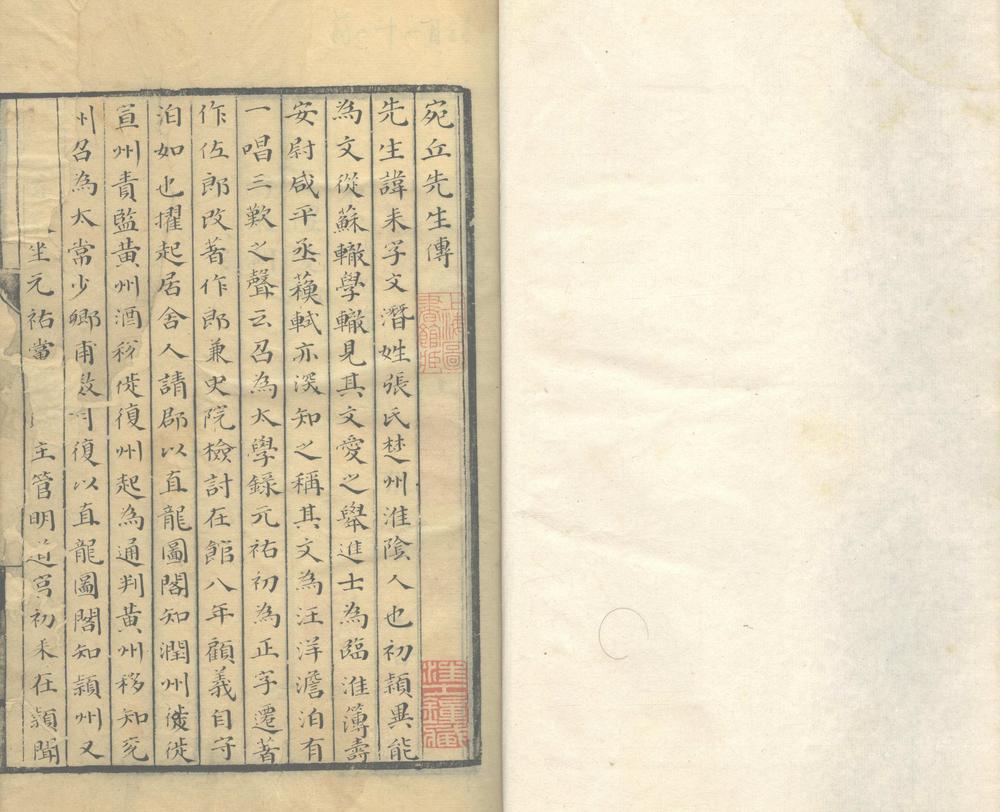 宛丘先生傳
先生諱耒字文潛姓張氏楚州淮陰人也初頴異能
為文從蘇轍學轍見其文愛之舉進士為臨淮簿壽
安尉咸平丞蘓軾亦深知之稱其文為汪洋澹泊有
一唱三歎之聲云召為太學錄元祐初為正字遷著
作佐郎改著作郎兼史院檢討在館八年顧義自守
泊如也擢起居舍人請郡以直龍圖閣知潤州徙
宣州責監黃州酒稅徙復州起為通判黃州移知兖
州召為太常少卿甫數月復以直龍圖閣知頴州又
坐元祐黨 主管明道宮初耒在頴聞
上海圖書館藏